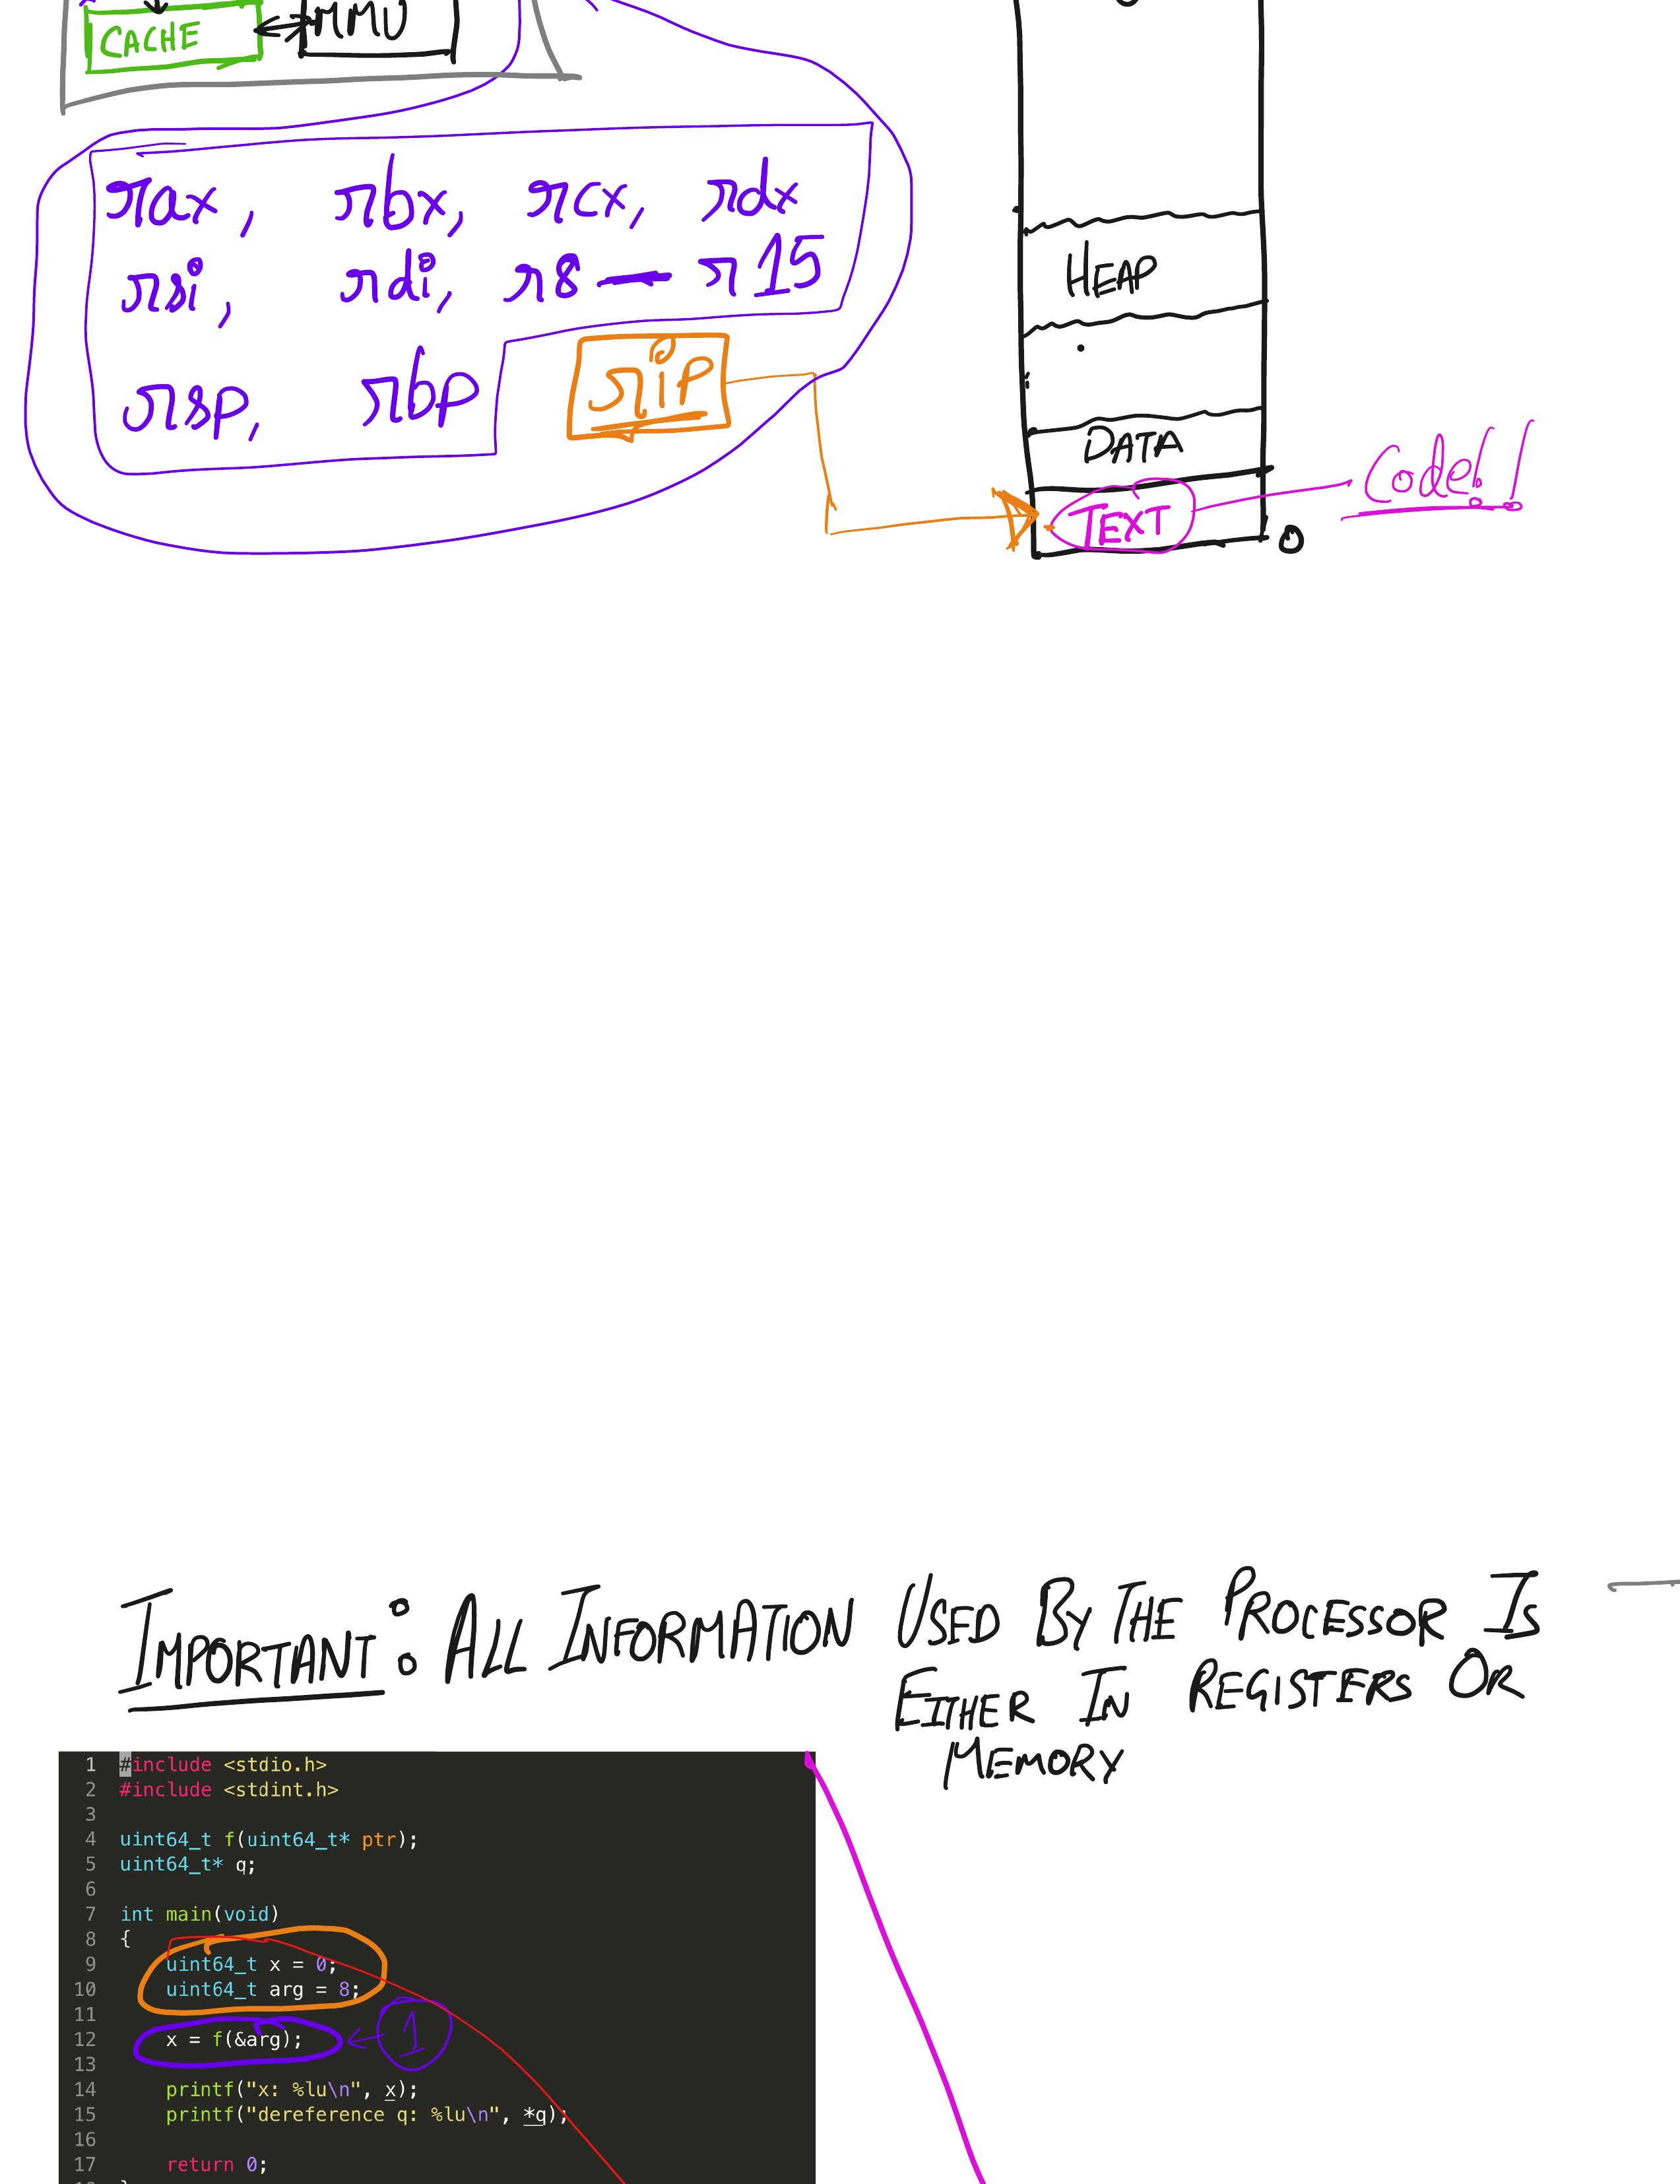 CACHE MMU
rax, rbx, rcx, rdx
rsi, rdi, r8 — r15
rsp, rbp rip
HEAP
DATA
TEXT
Code!!
0
IMPORTANT: ALL INFORMATION USED BY THE PROCESSOR IS
EITHER IN REGISTERS OR
MEMORY
1 #include <stdio.h>
2 #include <stdint.h>
3
4 uint64_t f(uint64_t* ptr);
5 uint64_t* q;
6
7 int main(void)
8 {
9 uint64_t x = 0;
10 uint64_t arg = 8;
11
12 x = f(&arg); ← 1
13
14 printf("x: %lu\n", x);
15 printf("dereference q: %lu\n", *q);
16
17 return 0;